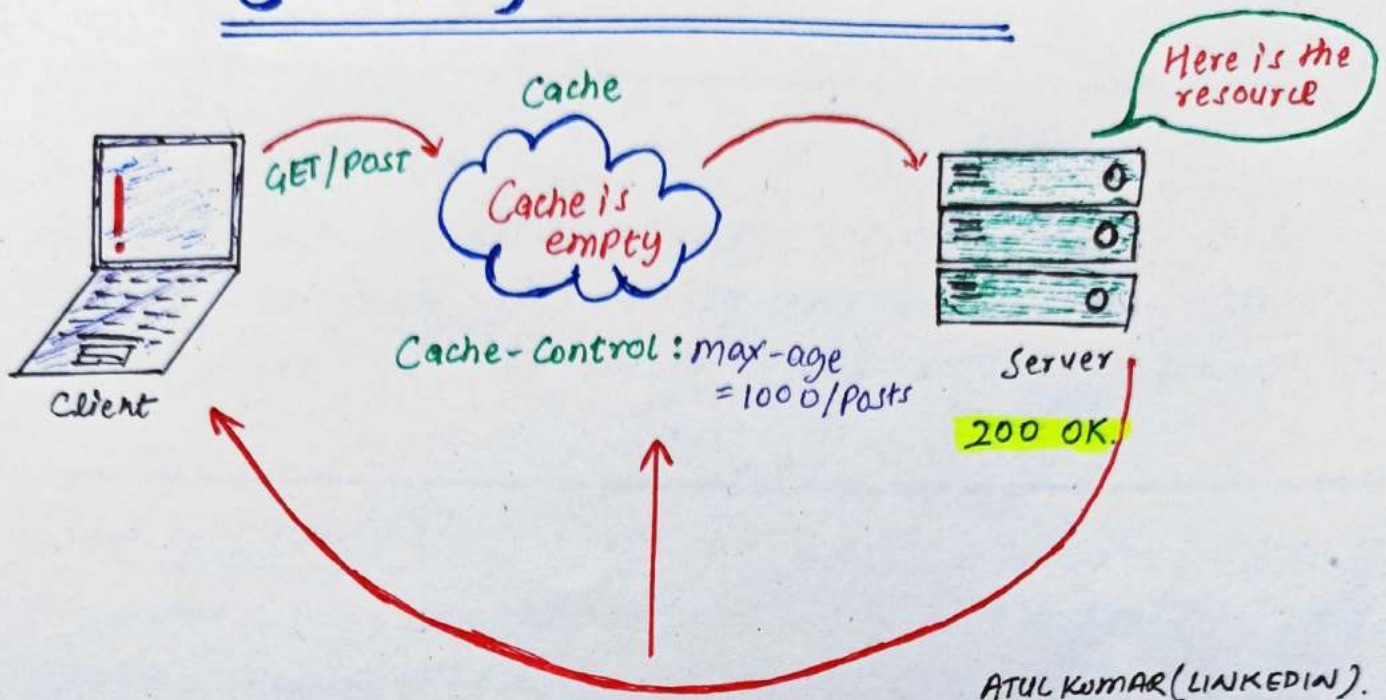 Cache
Here is the
resource
GET/POST
Cache is
empty
Cache-Control: max-age
=1000/Posts
Client
Server
200 OK.
ATUL KUMAR (LINKEDIN).